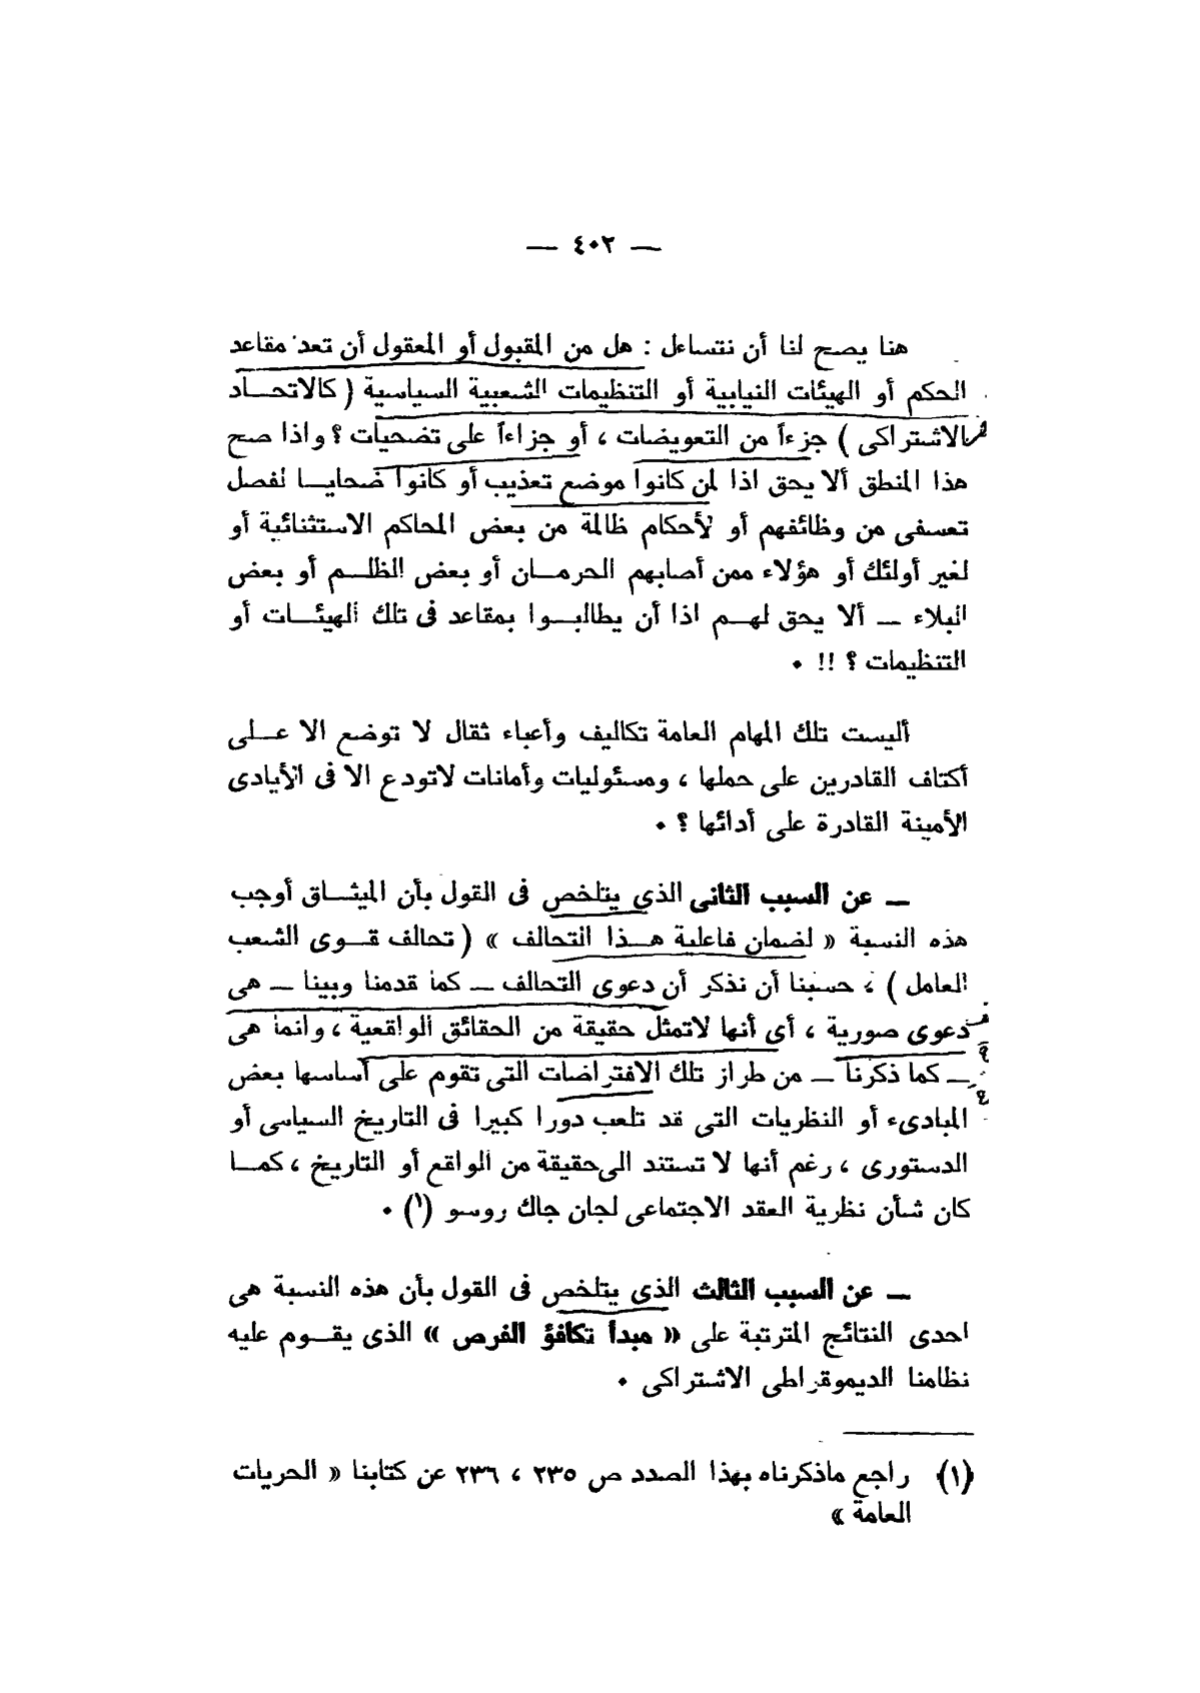 — ٤٠٢ —
هنا يصح لنا أن نتساءل : هل من المقبول أو المعقول أن تعد مقاعد
الحكم أو الهيئات النيابية أو التنظيمات الشعبية السياسية ( كالاتحاد
الاشتراكى ) جزءاً من التعويضات ، أو جزاءاً على تضحيات ؟ واذا صح
هذا المنطق ألا يحق اذا لمن كانوا موضع تعذيب أو كانوا ضحايا لفصل
تعسفى من وظائفهم أو لأحكام ظالمة من بعض المحاكم الاستثنائية أو
لغير أولئك أو هؤلاء ممن أصابهم الحرمان أو بعض الظلم أو بعض
البلاء — ألا يحق لهم اذا أن يطالبوا بمقاعد فى تلك الهيئات أو
التنظيمات ؟ !! •
أليست تلك المهام العامة تكاليف وأعباء ثقال لا توضع الا على
أكتاف القادرين على حملها ، ومسئوليات وأمانات لاتودع الا فى الأيادى
الأمينة القادرة على أدائها ؟ •
— عن السبب الثانى الذي يتلخص فى القول بأن الميثاق أوجب
هذه النسبة « لضمان فاعلية هذا التحالف » ( تحالف قوى الشعب
العامل ) ، حسبنا أن نذكر أن دعوى التحالف — كما قدمنا وبينا — هى
دعوى صورية ، أي أنها لاتمثل حقيقة من الحقائق الواقعية ، وانما هى
— كما ذكرنا — من طراز تلك الافتراضات التى تقوم على أساسها بعض
المبادىء أو النظريات التى قد تلعب دورا كبيرا فى التاريخ السياسى أو
الدستورى ، رغم أنها لا تستند الى حقيقة من الواقع أو التاريخ ، كما
كان شأن نظرية العقد الاجتماعى لجان جاك روسو (١) •
— عن السبب الثالث الذى يتلخص فى القول بأن هذه النسبة هى
احدى النتائج المترتبة على « مبدأ تكافؤ الفرص » الذى يقوم عليه
نظامنا الديموقراطى الاشتراكى •
(١) راجع ماذكرناه بهذا الصدد ص ٢٣٥ ، ٢٣٦ عن كتابنا « الحريات
العامة »